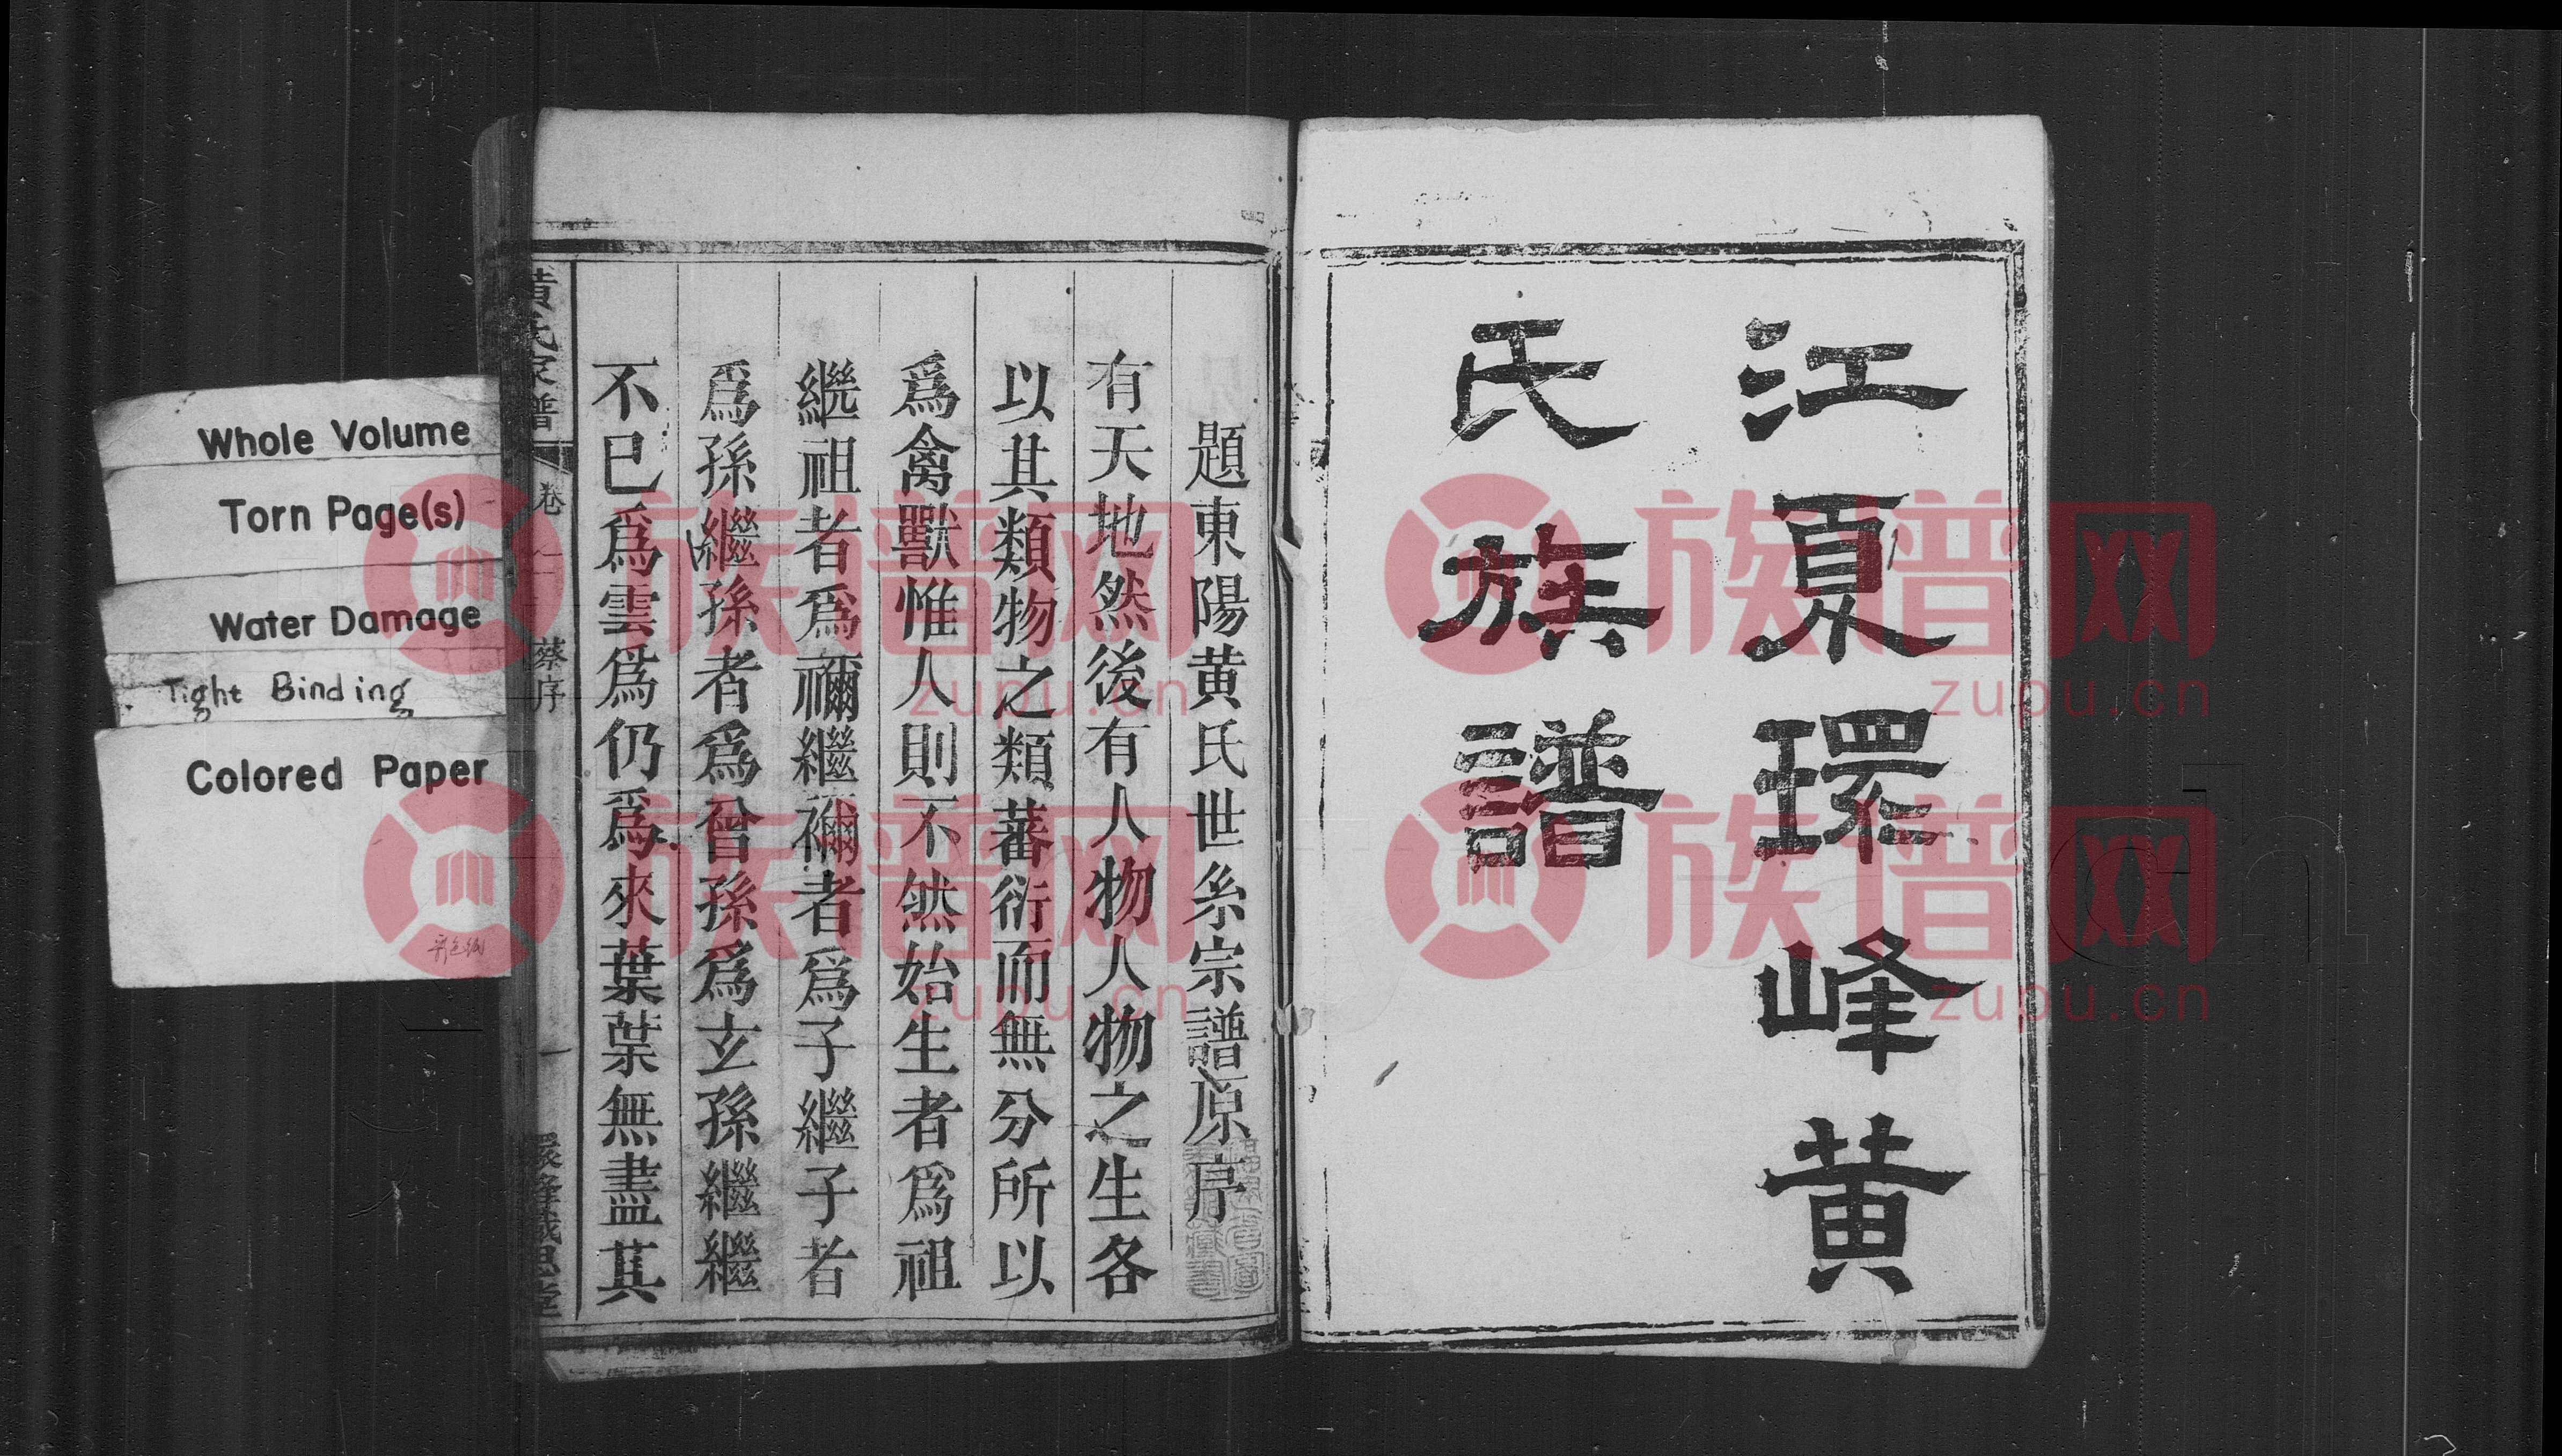 江夏環峰黄
氏族譜
題東陽黄氏世系宗譜原序
有天地然後有人物人物之生各
以其類物之類蕃衍而無分所以
爲禽獸惟人則不然始生者爲祖
繼祖者爲禰繼禰者爲子繼子者
爲孫繼孫者爲曾孫爲玄孫繼繼
不已爲雲爲仍爲來葉葉無盡其
黄氏宗譜 卷一 蔡序 一
Whole Volume
Torn Page(s)
Water Damage
Tight Binding
Colored Paper
族譜网
zupu.cn
族譜网
zupu.cn
族譜网
zupu.cn
族譜网
zupu.cn